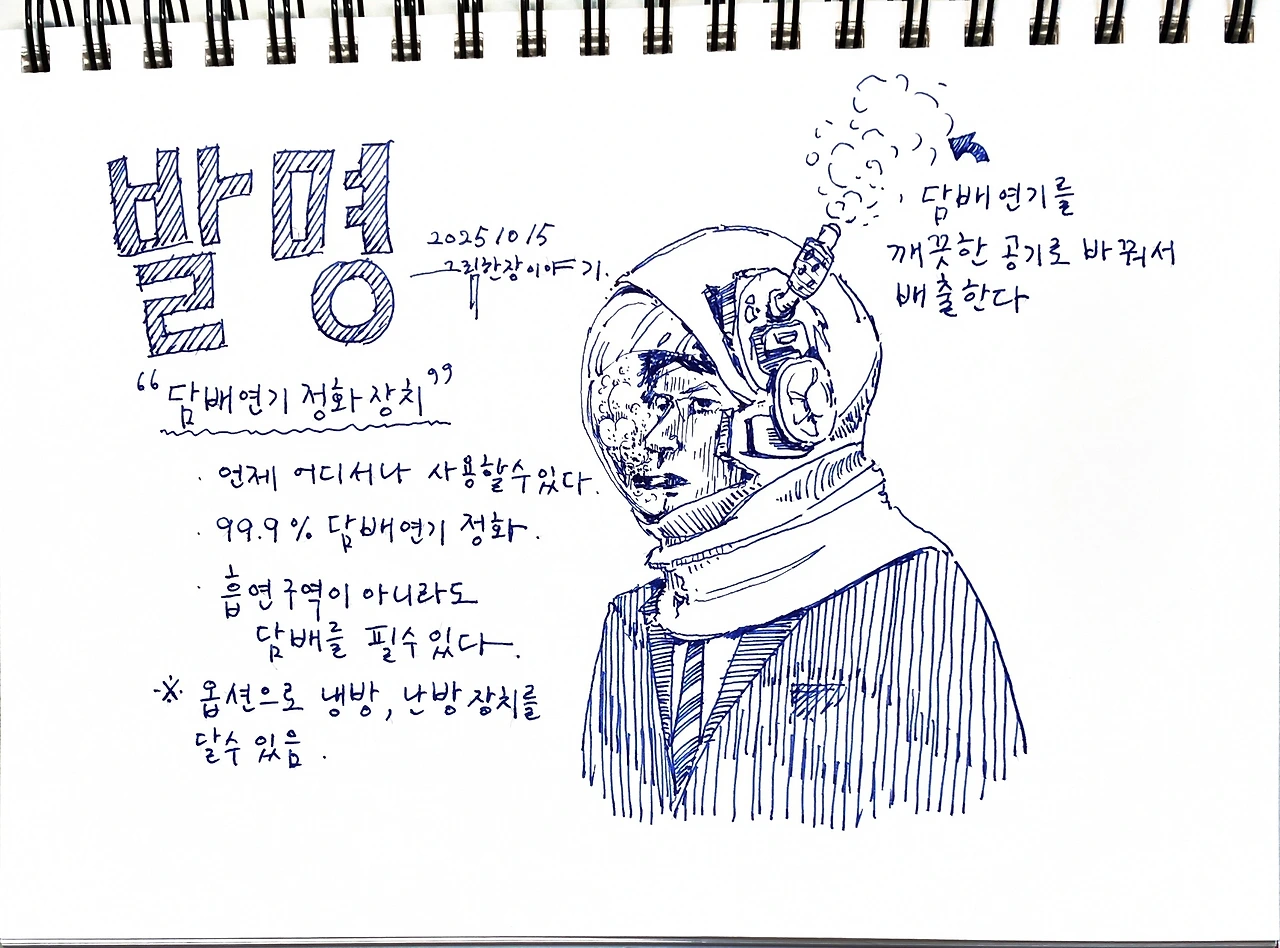 발명
20251015
그림한장이야기.
"담배연기 정화장치"
· 언제 어디서나 사용할수있다.
· 99.9% 담배연기 정화.
· 흡연구역이 아니라도
담배를 필수있다.
※ 옵션으로 냉방, 난방장치를
달수 있음.
· 담배연기를
깨끗한 공기로 바꿔서
배출한다